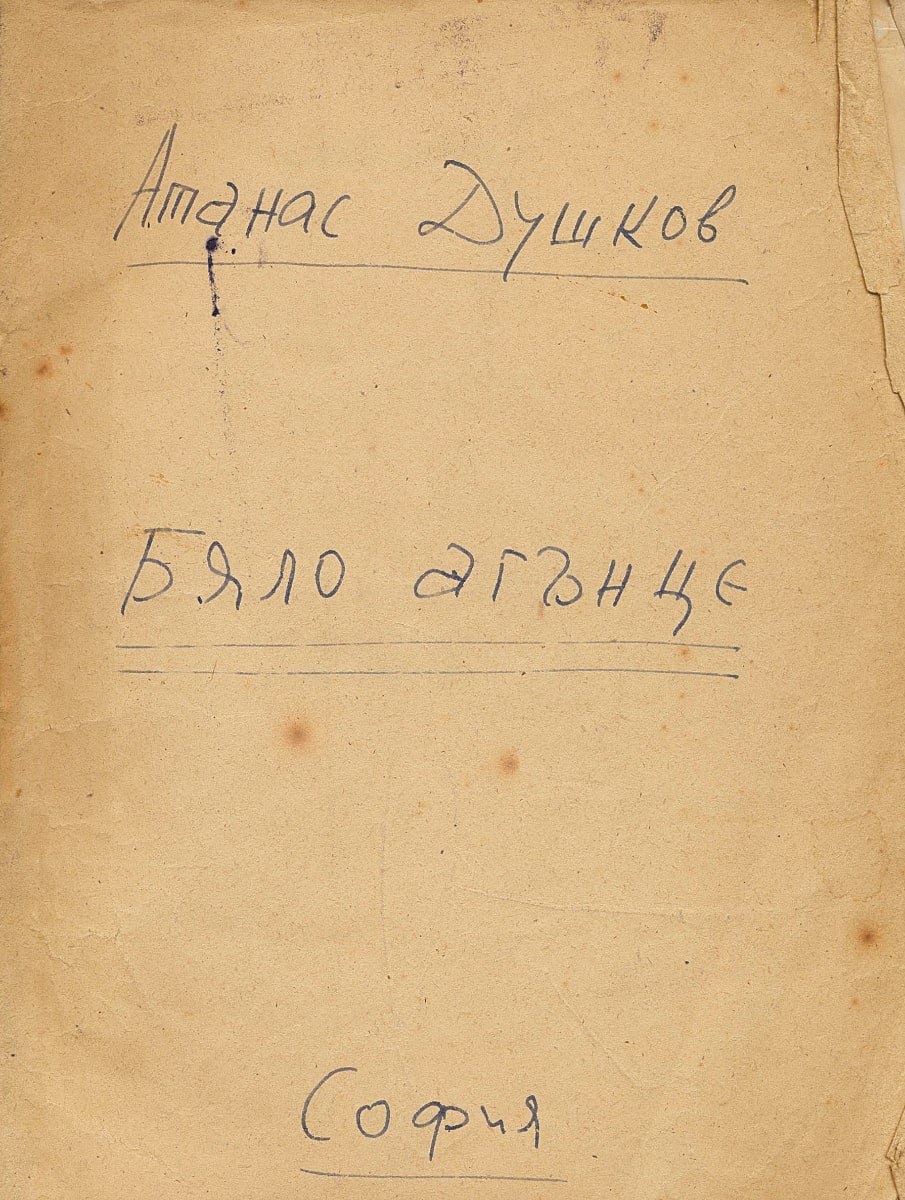 Атанас Душков
Бяло агънце
София